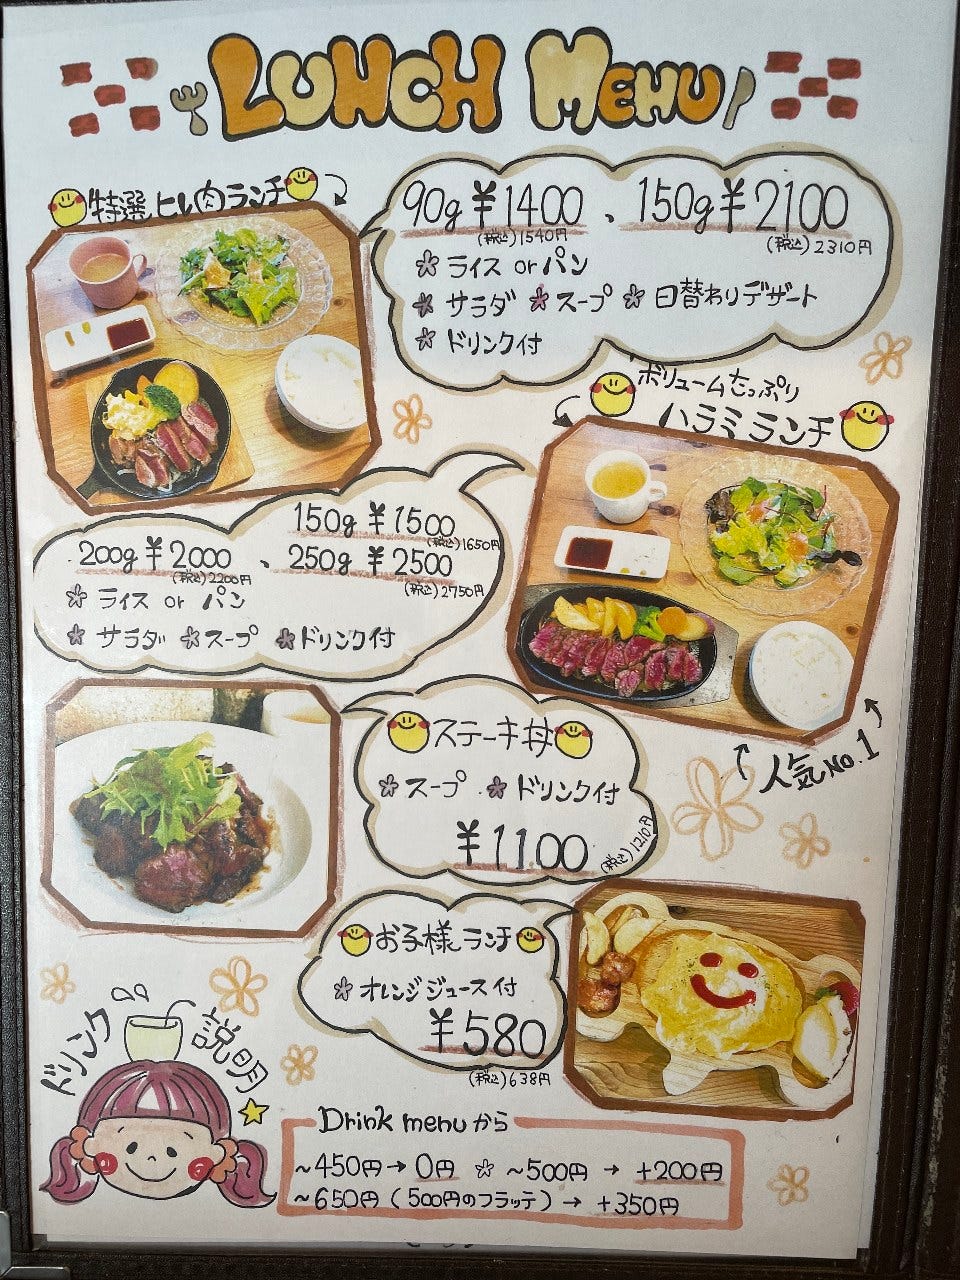 LUNCH MENU
特選ヒレ肉ランチ
90g ¥1400、150g ¥2100
(税込)1540円 (税込)2310円
ライス or パン
サラダ スープ 日替わりデザート
ドリンク付
ボリュームたっぷり
ハラミランチ
150g ¥1500
(税込)1650円
200g ¥2000、250g ¥2500
(税込)2200円 (税込)2750円
ライス or パン
サラダ スープ ドリンク付
人気No.1
ステーキ丼
スープ ドリンク付
¥1100
(税込)1210円
お子様ランチ
オレンジジュース付
¥580
(税込)638円
ドリンク説明
Drink menuから
~450円→0円 ~500円→+200円
~650円(500円のフラッテ)→+350円